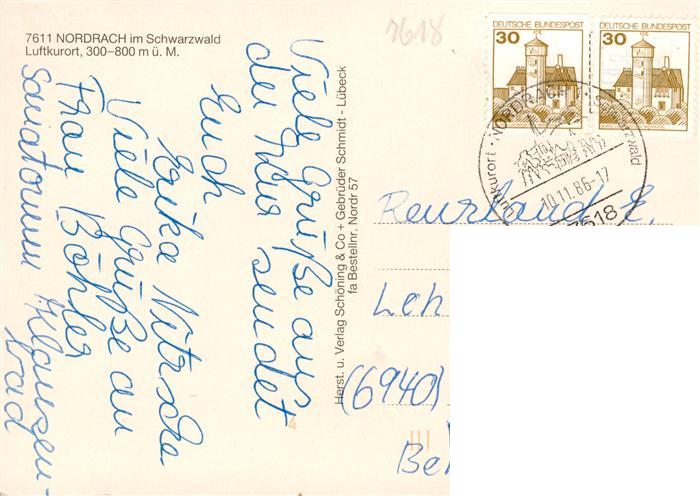 7611 NORDRACH im Schwarzwald
Luftkurort, 300–800 m ü. M.
7618
DEUTSCHE BUNDESPOST
30
DEUTSCHE BUNDESPOST
30
Luftkurort · NORDRACH · Schwarzwald
10.11.86-17
7618
Viele Grüße aus
der Kur sendet
Euch
Erika
Viele Grüße an
Frau Böhler
Sanatorium Klausen-
bad
Herst. u. Verlag Schöning & Co + Gebrüder Schmidt - Lübeck
fa Bestellnr. Nordr 57
E.
Leh
(6940)